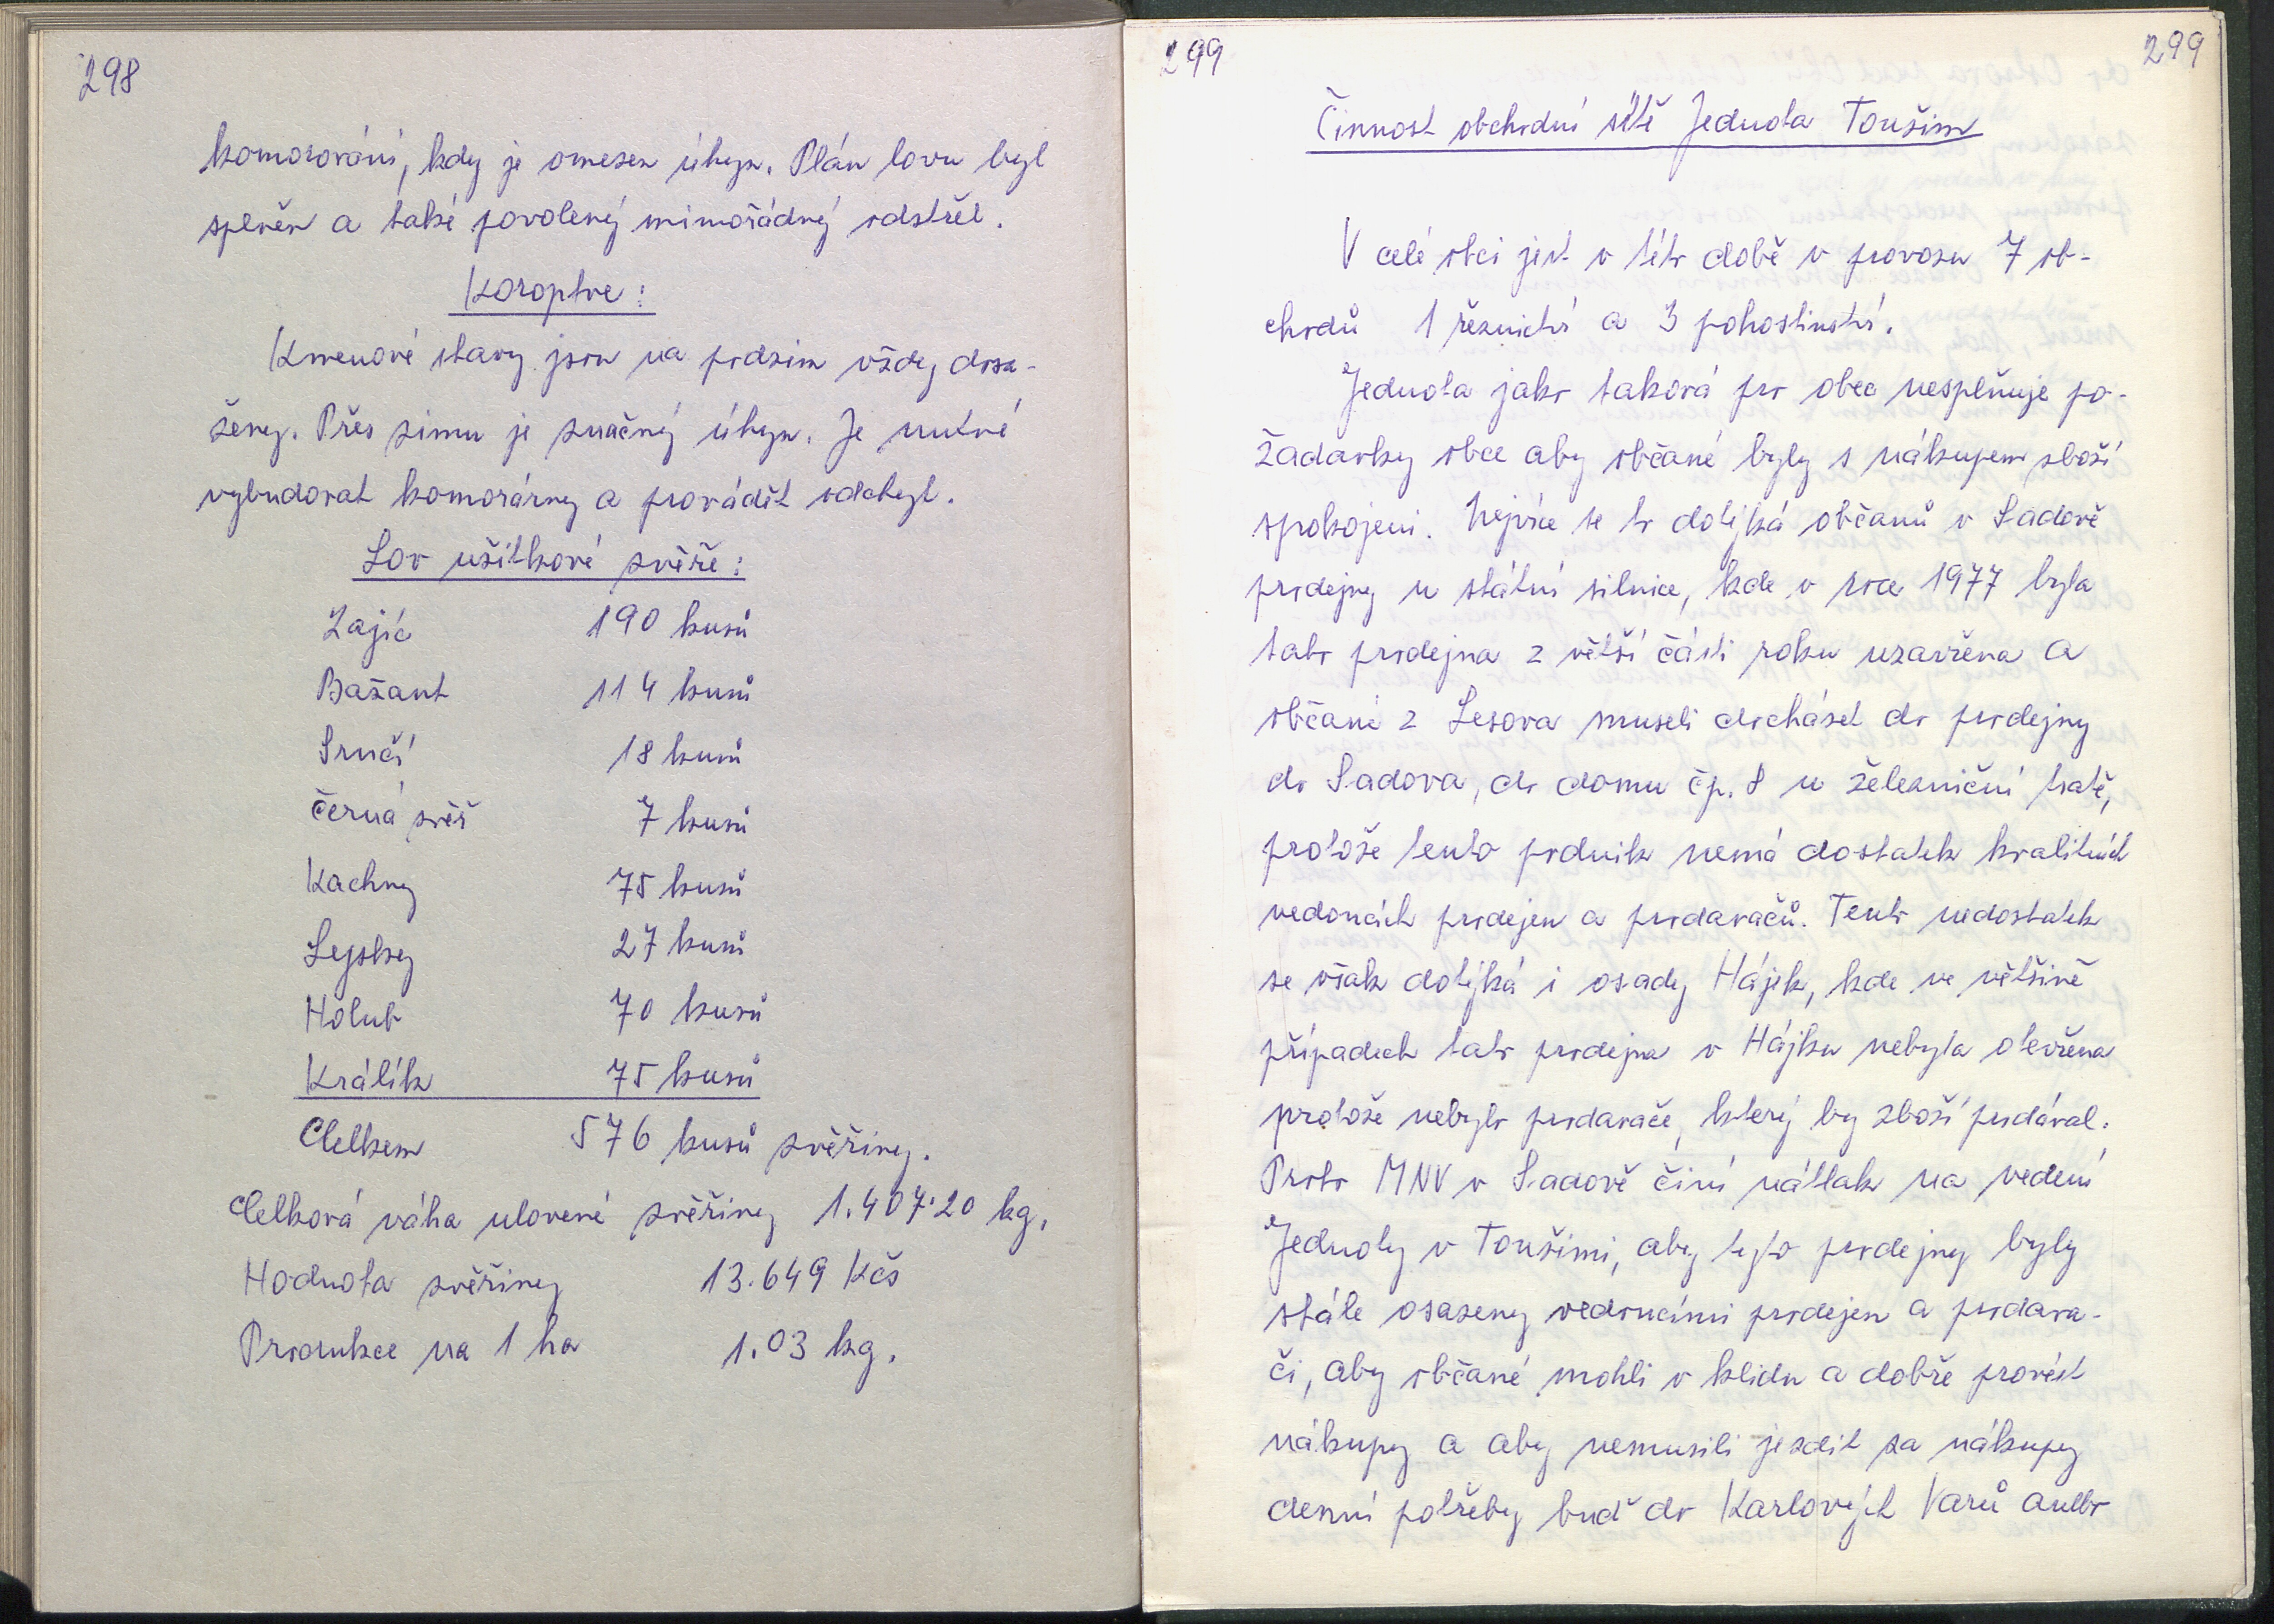 298
komorování, kdy je omezen úhyn. Plán lovu byl
splněn a také povolený mimořádný odstřel.
Koroptve:
Kmenové stavy jsou na podzim vždy dosa-
ženy. Přes zimu je značný úhyn. Je nutné
vybudovat komorárny a provádět odchyt.
Lov užitkové zvěře:
Zajíc 190 kusů
Bažant 114 kusů
Srnčí 18 kusů
černá zvěř 7 kusů
Kachny 75 kusů
Lysky 27 kusů
Holub 70 kusů
Králík 75 kusů
Celkem 576 kusů zvěřiny.
Celková váha ulovené zvěřiny 1.407.20 kg.
Hodnota zvěřiny 13.649 Kčs
Produkce na 1 ha 1.03 kg.
299
299
Činnost obchodní sítě Jednota Toužim
V celé obci jest v této době v provozu 7 ob-
chodů 1 řeznictví a 3 pohostinství.
Jednota jako taková pro obec nesplňuje po-
žadavky obce aby občané byly s nákupem zboží
spokojeni. Nejvíce se to dotýká občanů v Sadově
prodejny u státní silnice, kde v roce 1977 byla
tato prodejna z větší části roku uzavřena a
občané z Lesova museli docházet do prodejny
do Sadova, do domu čp. 8 u železniční tratě,
protože tento podnik nemá dostatek kvalitních
vedoucích prodejen a prodavačů. Tento nedostatek
se však dotýká i osady Hájek, kde ve většině
případech tato prodejna v Hájku nebyla otevřena
protože nebylo prodavače, který by zboží prodával.
Proto MNV v Sadově činí nátlak na vedení
Jednoty v Toužimi, aby tyto prodejny byly
stále osazeny vedoucími prodejen a prodava-
či, aby občané mohli v klidu a dobře provést
nákupy a aby nemusili jezdit za nákupy
denní potřeby buď do Karlových Varů anebo